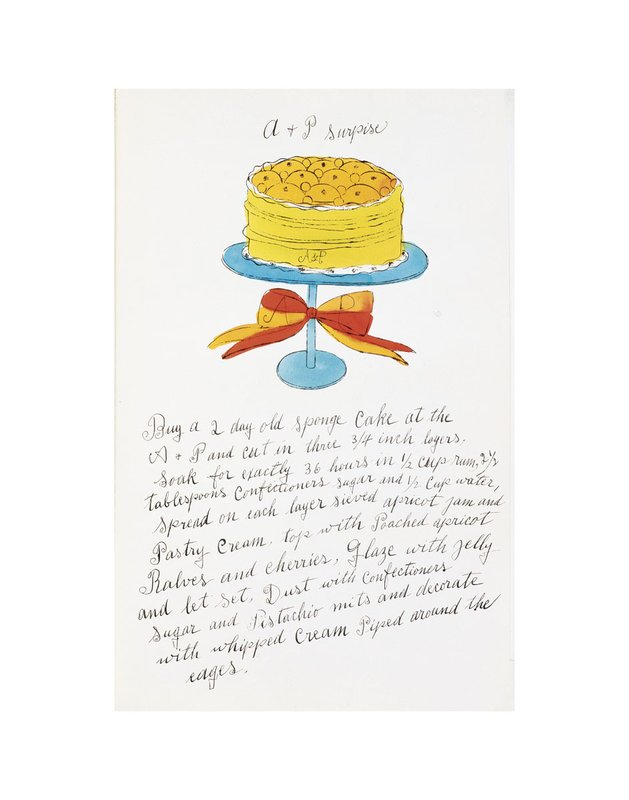 A + P surpise
A & P
A P
Buy a 2 day old sponge Cake at the
A + P and cut in three 3/4 inch layers.
Soak for exactly 36 hours in 1/2 cup rum, 2 1/2
tablespoons Confectioners sugar and 1/2 Cup water,
Spread on each layer sieved apricot jam and
Pastry Cream. top with Poached apricot
Ralves and cherries, Glaze with jelly
and let set, Dust with Confectioners
sugar and Pistachio mits and decorate
with whipped Cream Piped around the
eages.